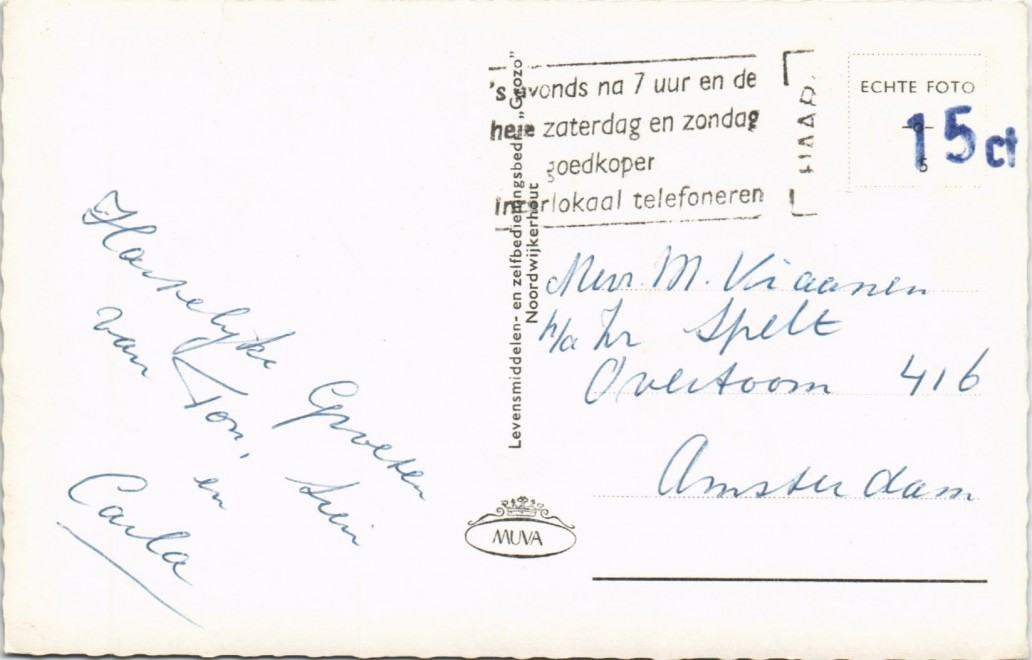 Hartelyke Groeten
van Ton, Leni
en
Carla
Levensmiddelen- en zelfbedieningsbedr. „Geozo”
Noordwijkerhout
's avonds na 7 uur en de
hele zaterdag en zondag
goedkoper
interlokaal telefoneren
HAAR
ECHTE FOTO
15 ct
Mevr. M. Kraanen
p/a Hr Spelt
Overtoom 416
Amsterdam
MUVA